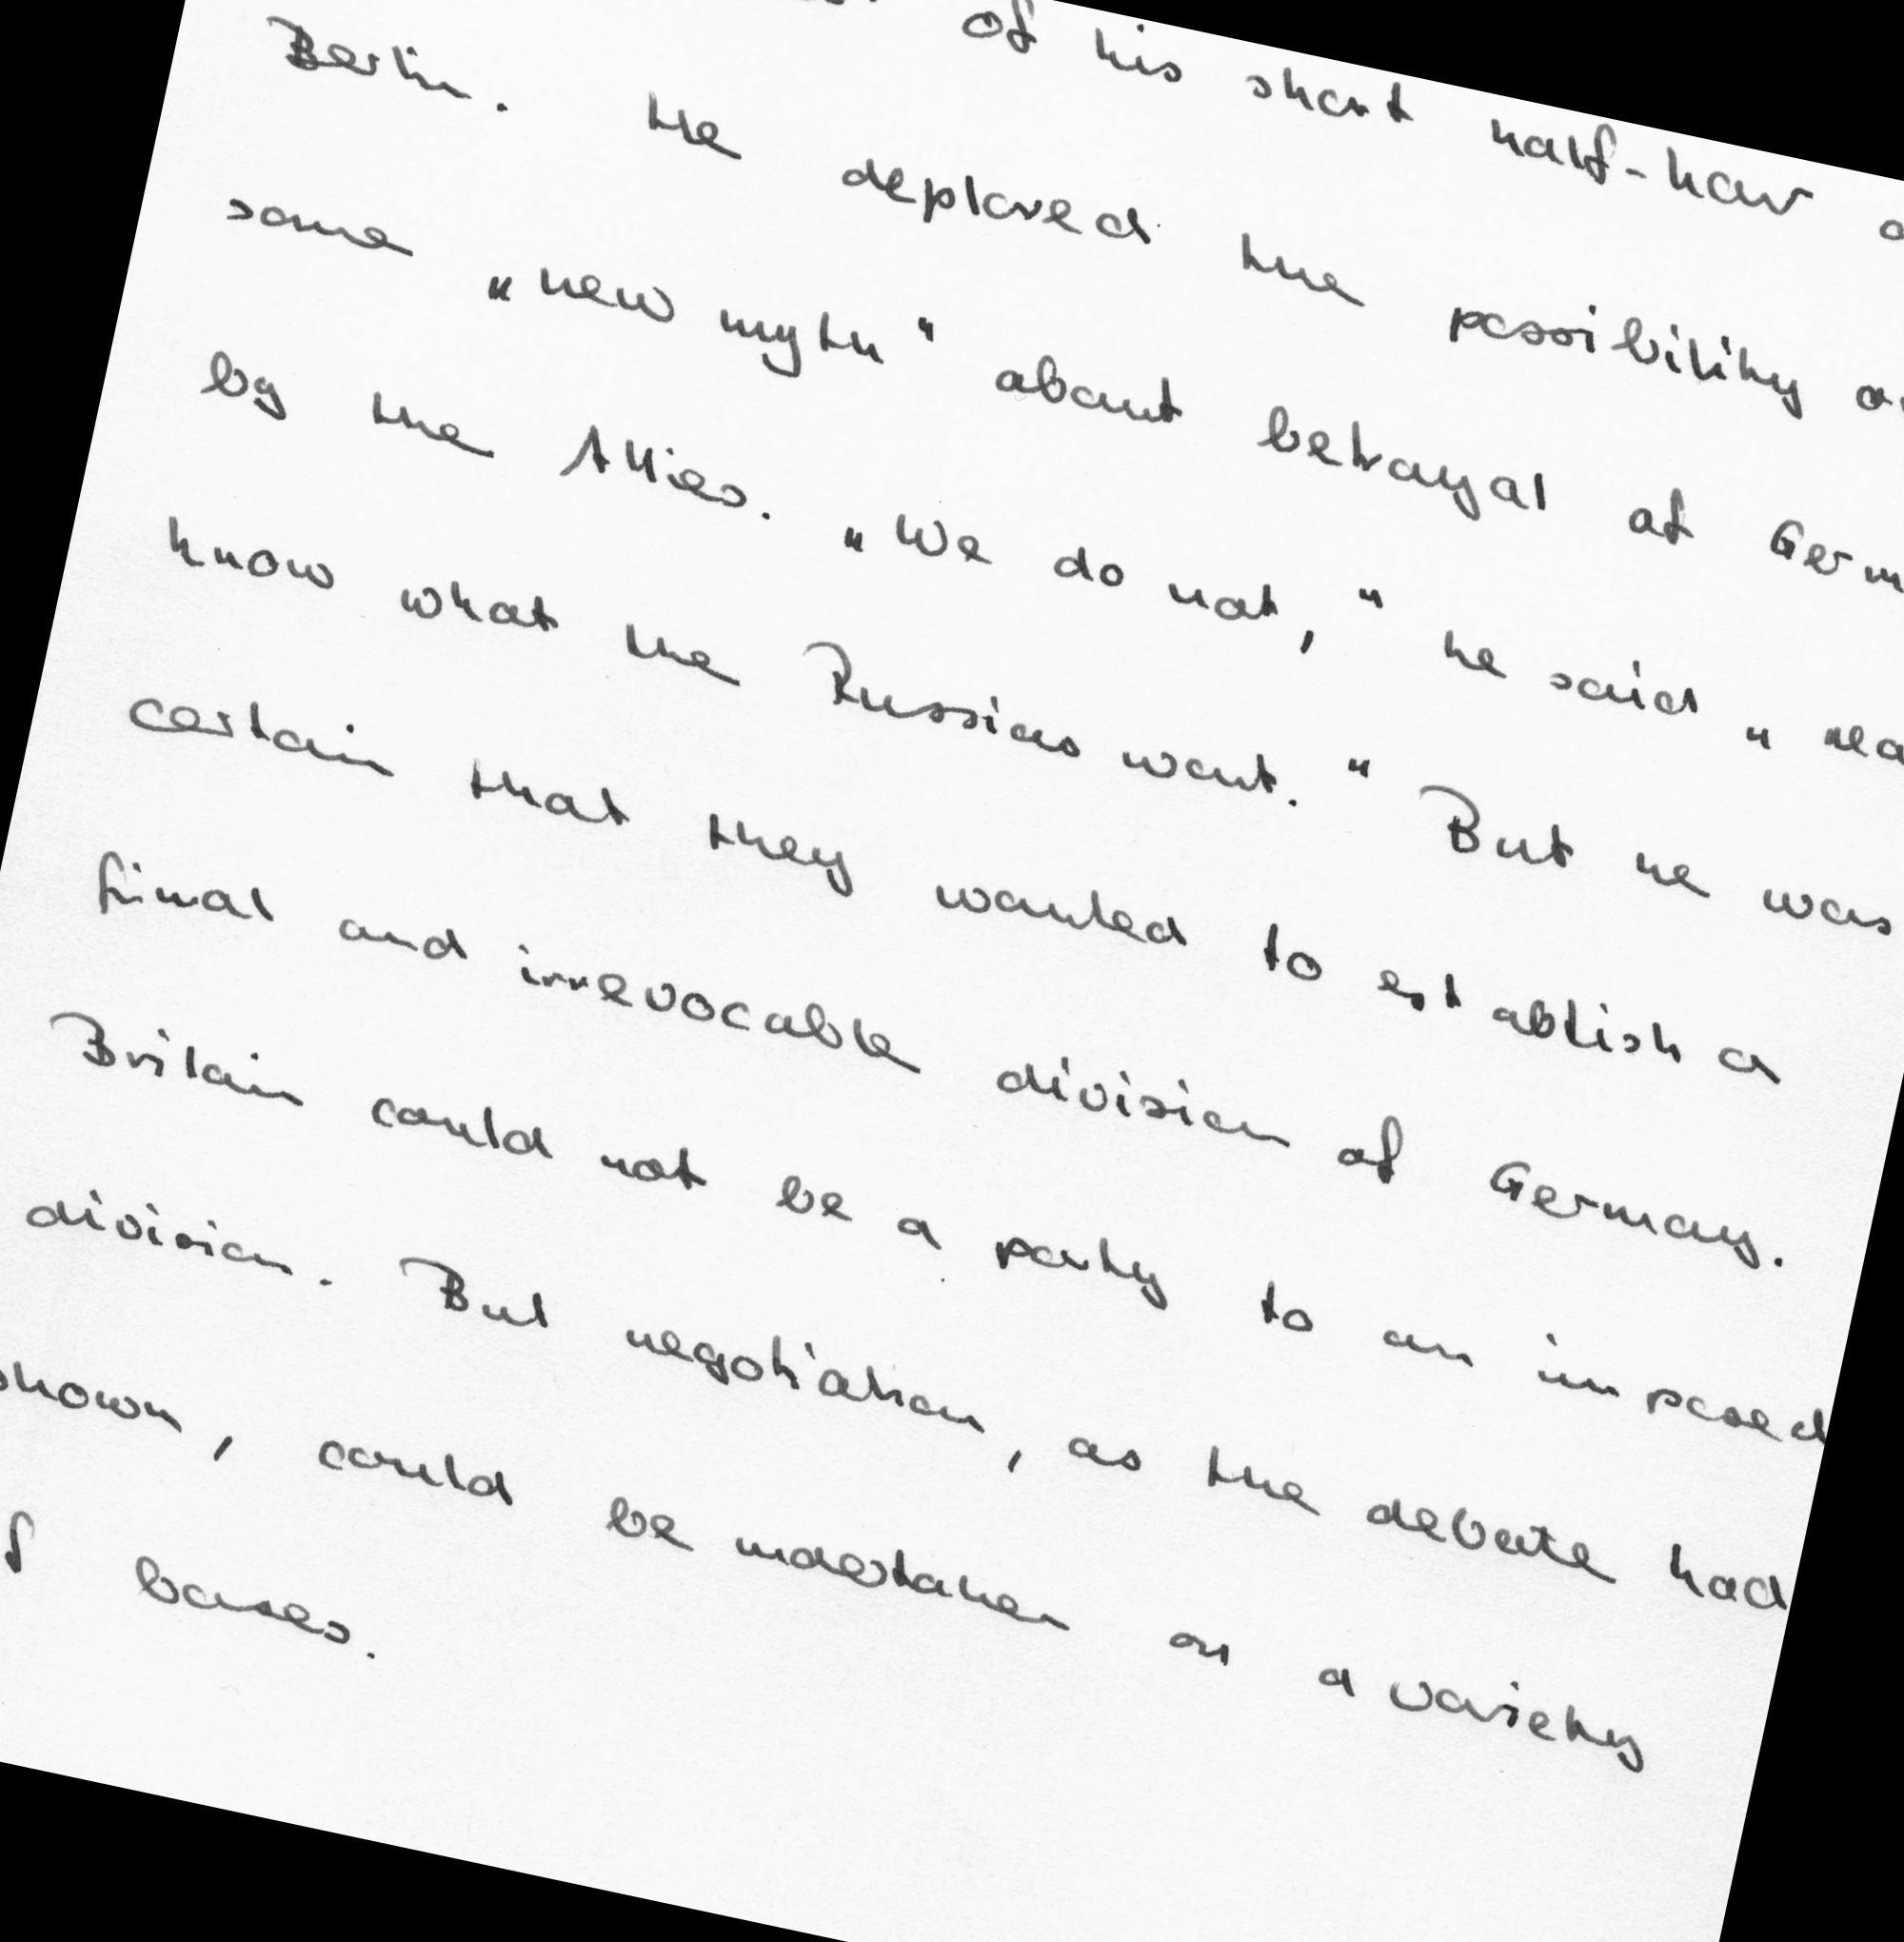 of his short half-hour
Berlin. He deplored the possibility
some „new myth" about betrayal of Germ
by the Allies. „We do not," he said „
know what the Russias want." But he was
certain that they wanted to establish a
final and irrevocable division of Germany.
Britain could not be a party to an imposed
division. But negotiation, as the debate had
shown, could be undertaken on a variety
bases.